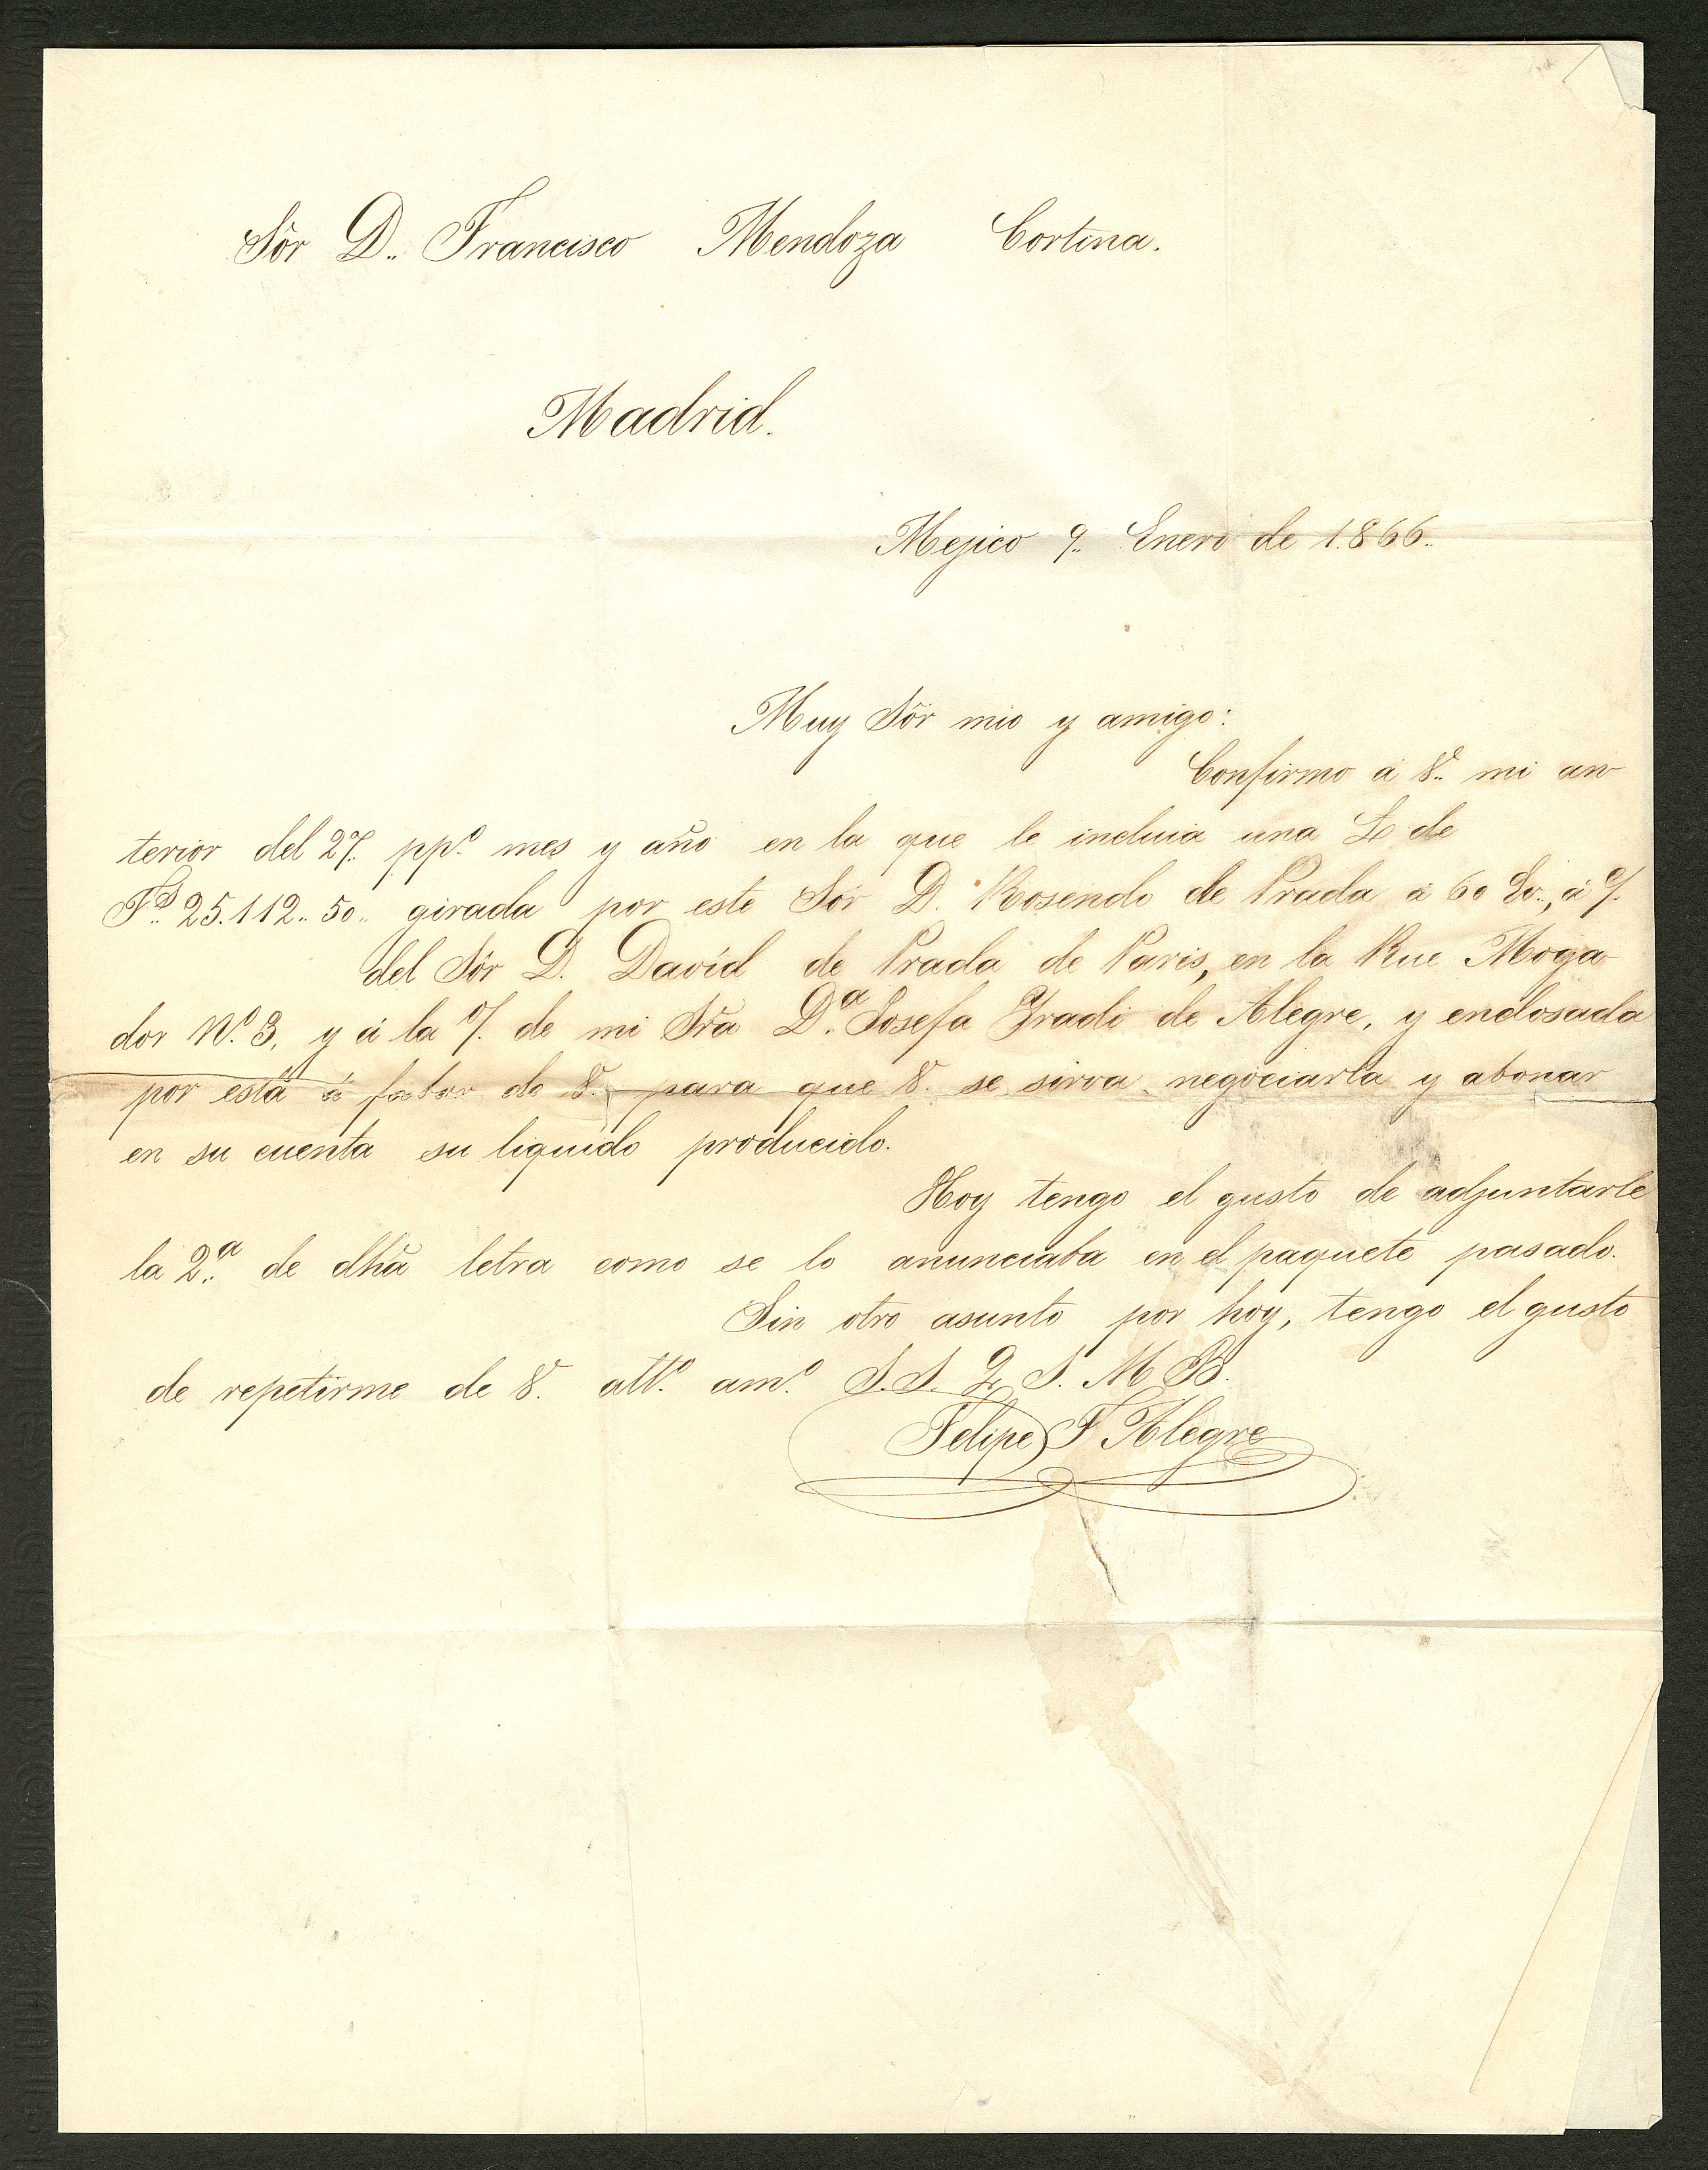 Sôr D.. Francisco Mendoza Cortina.
Madrid.
Mejico 9.. Enero de 1.866..
Muy Sôr mio y amigo:
Confirmo á V.. mi an
terior del 27. pp.º mes y año en la que le incluia una L de
F.ˢ 25.112.. 50.. girada por este Sôr D. Rosendo de Prada á 60 d/v., á c/.
del Sôr D. David de Prada de Paris, en la Rue Moga
dor N.º 3, y á la o/. de mi Srã D.ª Josefa Yradi de Alegre, y endosada
por está á fabor de V. para que V. se sirva negociarla y abonar
en su cuenta su liquido producido.
Hoy tengo el gusto de adjuntarle
la 2.ª de dhã letra como se lo anunciaba en el paquete pasado.
Sin otro asunto por hoy, tengo el gusto
de repetirme de V. att.º am.º S.S. Q S. M B.
Felipe F Alegre